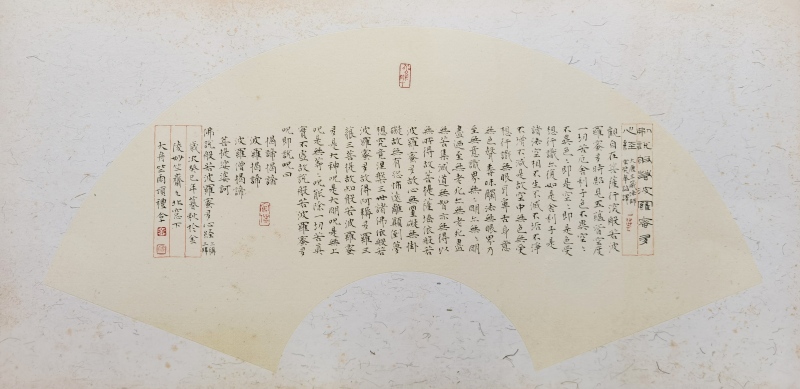 佛說般若波羅蜜多
心經
觀自在菩薩行深般若波
羅蜜多時照見五蘊皆空度
一切苦厄舍利子色不異空空
不異色色即是空空即是色受
想行識亦復如是舍利子是
諸法空相不生不滅不垢不淨
不增不減是故空中無色無受
想行識無眼耳鼻舌身意
無色聲香味觸法無眼界乃
至無意識界無無明亦無無明
盡乃至無老死亦無老死盡
無苦集滅道無智亦無得以
無所得故菩提薩埵依般若
波羅蜜多故心無罣礙無掛
礙故無有恐怖遠離顛倒夢
想究竟涅槃三世諸佛依般若
波羅蜜多故得阿耨多羅三
藐三菩提故知般若波羅蜜
多是大神咒是大明咒是無上
咒是無等等咒能除一切苦真
實不虛故說般若波羅蜜多
咒即說咒曰
揭諦揭諦
波羅揭諦
波羅僧揭諦
菩提娑婆訶
佛說般若波羅蜜多心經
歲次癸巳年
大舟
頂禮